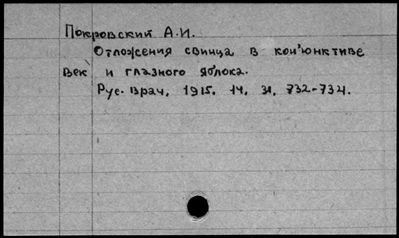 Покровский А.И.
Отложения свинца в кон'юнктиве
век и глазного яблока.
Рус. врач, 1915, 14, 31, 732-734.